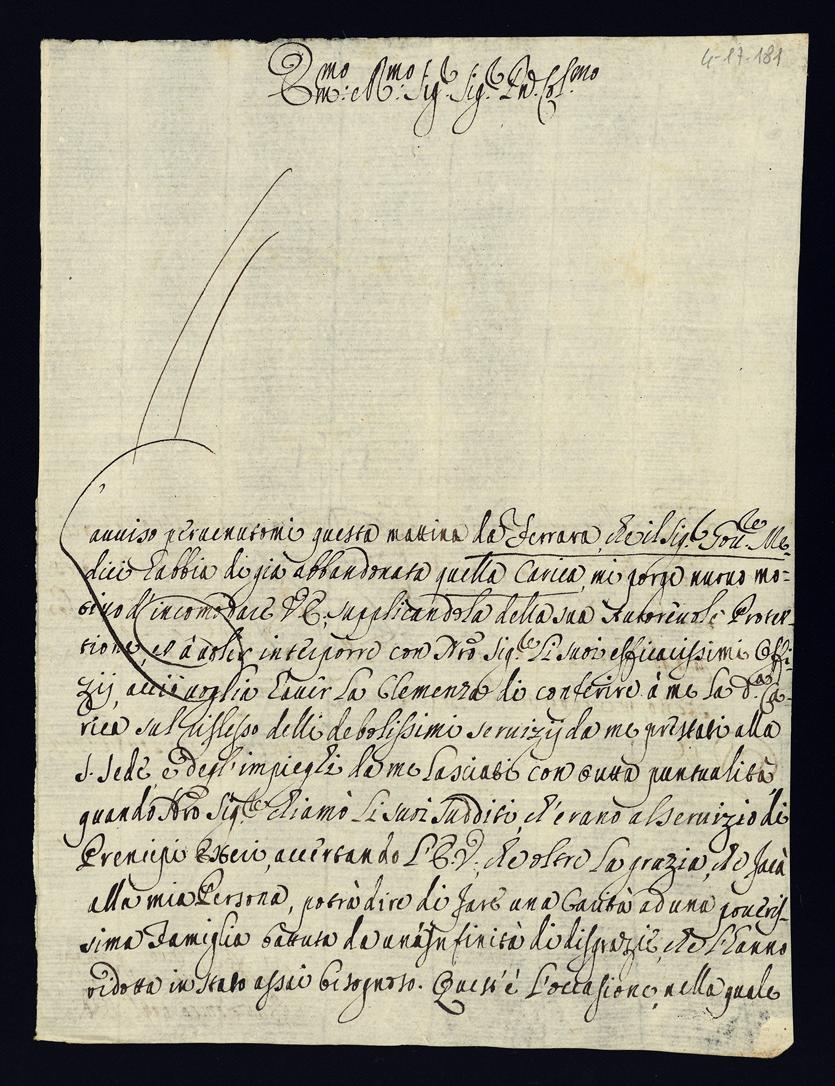 4-17-181
Em.mo e R.mo Sig.r Sig.r Pn. Col.mo
L'auuiso peruenutomi questa mattina da Ferrara, che il Sig.r Me-
dici habbia di già abbandonata quella Carica, mi porge nuouo mo=
tiuo d'incomodare V.E., supplicandola della sua Autoreuole Protet-
tione, et à voler interporre con Nrõ Sig.re Li suoi efficacissimi Offi-
zij, acciò voglia hauer La Clemenza di conferire à me La d.a Ca-
rica sul riflesso delli debolissimi seruizij da me prestati alla
S. Sede, e degl'impieghi da me Lasciati con tutta puntualità
quando Nrõ Sig.re chiamò Li suoi sudditi, ch'erano al seruizio di
Prencipi Esteri, accertando L'E.V., che oltre La grazia, che farà
alla mia Persona, potrà dire di fare una Carità ad una poueris-
sima Famiglia battuta da un'infinità di disgrazie, che L'hanno
ridotta in stato assai bisognoso. Quest'è L'occasione, nella quale